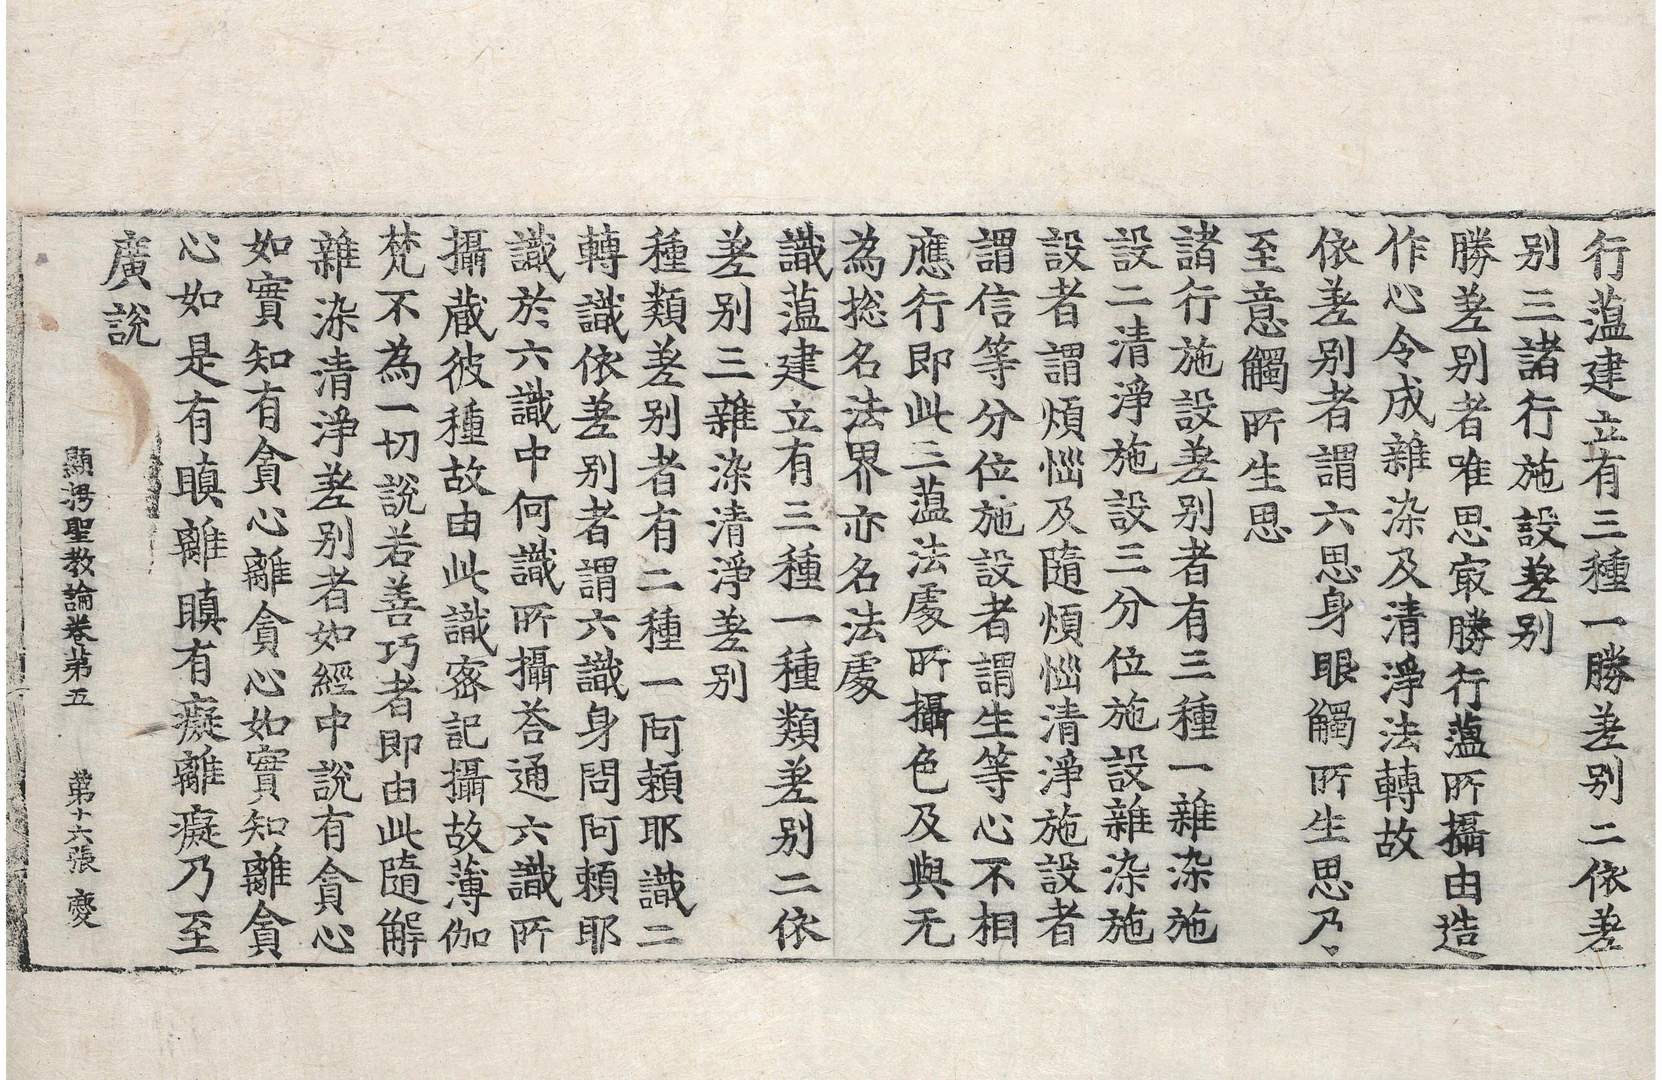 行蕰建立有三種一勝差别二依差
别三諸行施設差别
勝差别者唯思冣勝行蕰所攝由造
作心令成雜染及清淨法轉故
依差别者謂六思身眼觸所生思乃
至意觸所生思
諸行施設差别者有三種一雜染施
設二清淨施設三分位施設雜染施
設者謂煩惱及隨煩惱清淨施設者
謂信等分位施設者謂生等心不相
應行即此三蕰法處所攝色及與无
為捴名法界亦名法處
識蕰建立有三種一種類差别二依
差别三雜染清淨差别
種類差别者有二種一阿頼耶識二
轉識依差别者謂六識身問阿頼耶
識於六識中何識所攝荅通六識所
攝蔵彼種故由此識宻記攝故薄伽
梵不為一切說若善巧者即由此隨解
雜染清淨差别者如經中說有貪心
如實知有貪心離貪心如實知離貪
心如是有瞋離瞋有癡離癡乃至
廣說
顯揚聖教論卷第五 第十六張 㦬